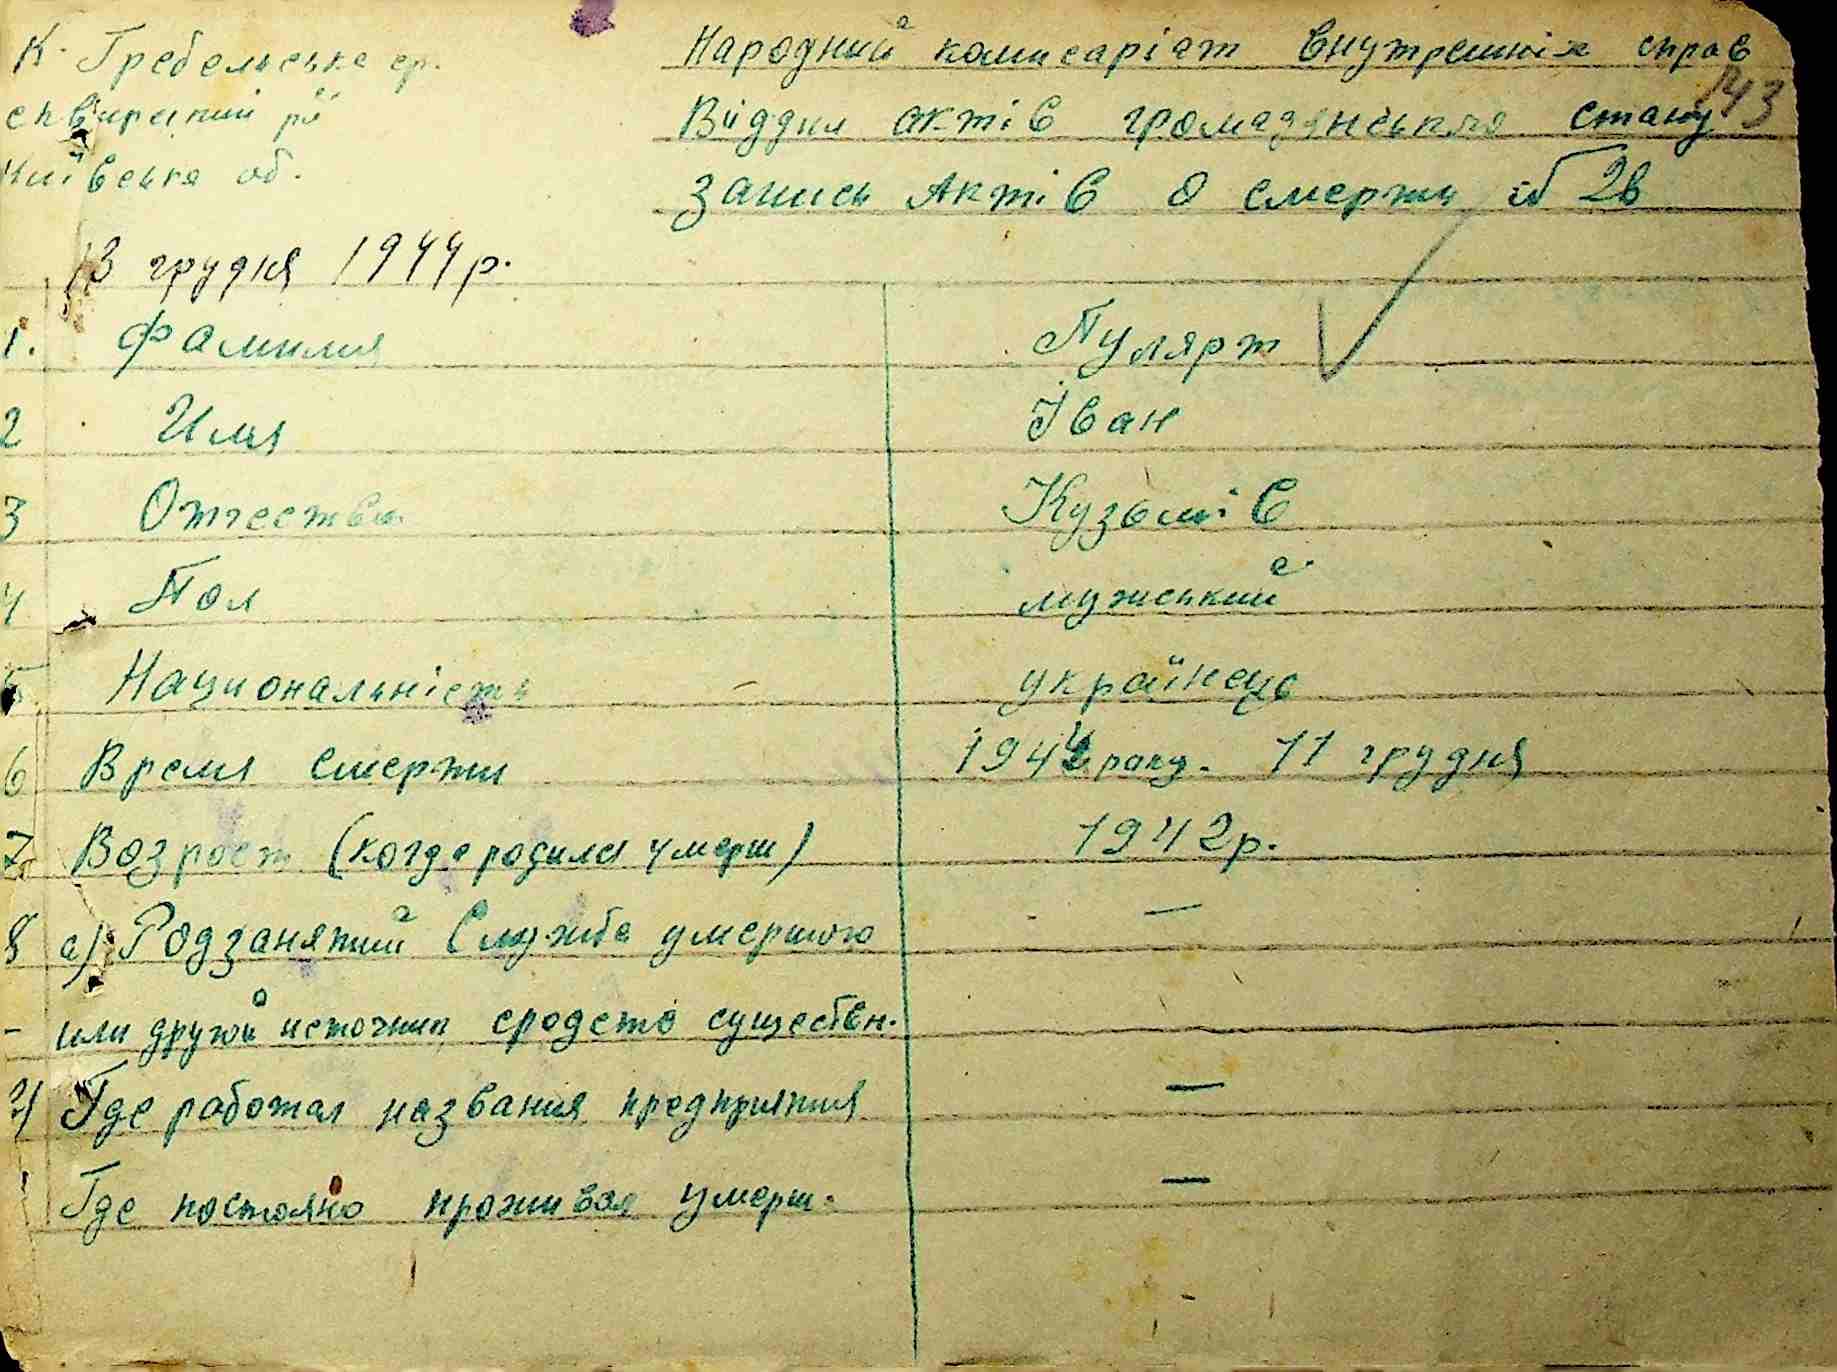 К-Гребельська ср.
сквирський рй
Київська об.
Народний комисаріат внутрешніх справ
143
Віддил актів громадянського стану
запись Актів о смерти № 28
13 грудня 1944 р.
1. Фамилия Пулярт
2 Имя Іван
3 Отчество Кузьмів
4 Пол мужський
5 Национальністи — українець
6 Время смерти 1944 року. 11 грудня
7 Возраст (когда родился умерш) 1942 р.
8 а) Род занятий Служба умершого —
- или другой источник средств существ.
Где работал названия предприятия —
Где постояно проживал умерш. —